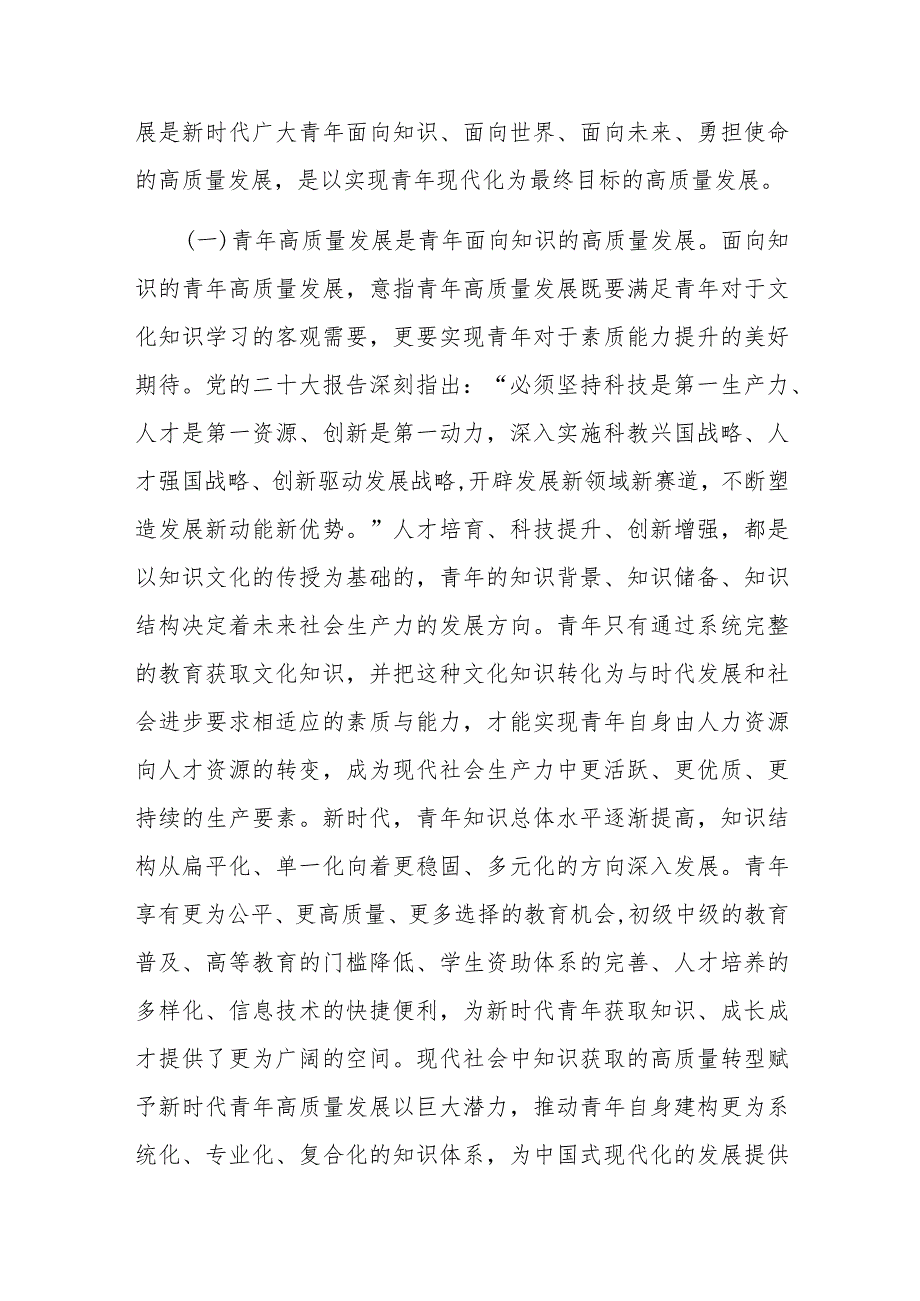 展是新时代广大青年面向知识、面向世界、面向未来、勇担使命
的高质量发展，是以实现青年现代化为最终目标的高质量发展。
(一)青年高质量发展是青年面向知识的高质量发展。面向知
识的青年高质量发展，意指青年高质量发展既要满足青年对于文
化知识学习的客观需要，更要实现青年对于素质能力提升的美好
期待。党的二十大报告深刻指出：“必须坚持科技是第一生产力、
人才是第一资源、创新是第一动力，深入实施科教兴国战略、人
才强国战略、创新驱动发展战略,开辟发展新领域新赛道，不断塑
造发展新动能新优势。”人才培育、科技提升、创新增强，都是
以知识文化的传授为基础的，青年的知识背景、知识储备、知识
结构决定着未来社会生产力的发展方向。青年只有通过系统完整
的教育获取文化知识，并把这种文化知识转化为与时代发展和社
会进步要求相适应的素质与能力，才能实现青年自身由人力资源
向人才资源的转变，成为现代社会生产力中更活跃、更优质、更
持续的生产要素。新时代，青年知识总体水平逐渐提高，知识结
构从扁平化、单一化向着更稳固、多元化的方向深入发展。青年
享有更为公平、更高质量、更多选择的教育机会,初级中级的教育
普及、高等教育的门槛降低、学生资助体系的完善、人才培养的
多样化、信息技术的快捷便利，为新时代青年获取知识、成长成
才提供了更为广阔的空间。现代社会中知识获取的高质量转型赋
予新时代青年高质量发展以巨大潜力，推动青年自身建构更为系
统化、专业化、复合化的知识体系，为中国式现代化的发展提供